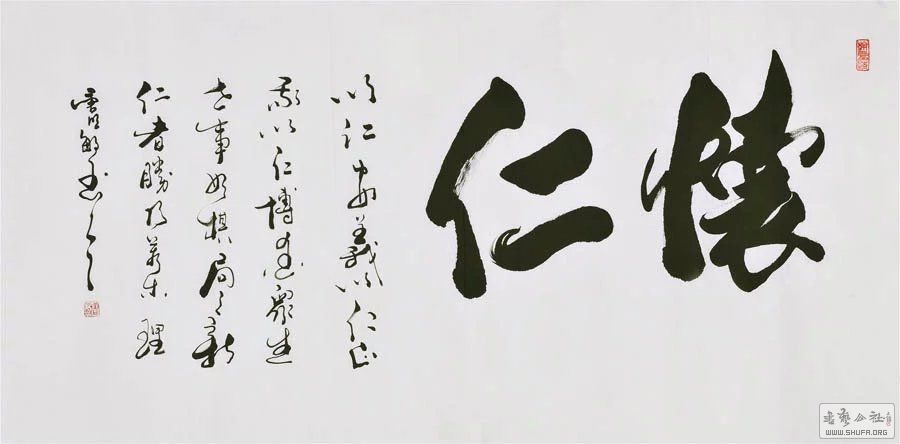 懷仁
以仁安義以仁正
我以仁博愛眾生
世事如棋局々新
仁者勝乃萬 理
敏书
書藝公社
WWW.SHUFA.ORG